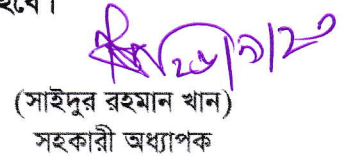 হবে।
(সাইদুর রহমান খান)
সহকারী অধ্যাপক